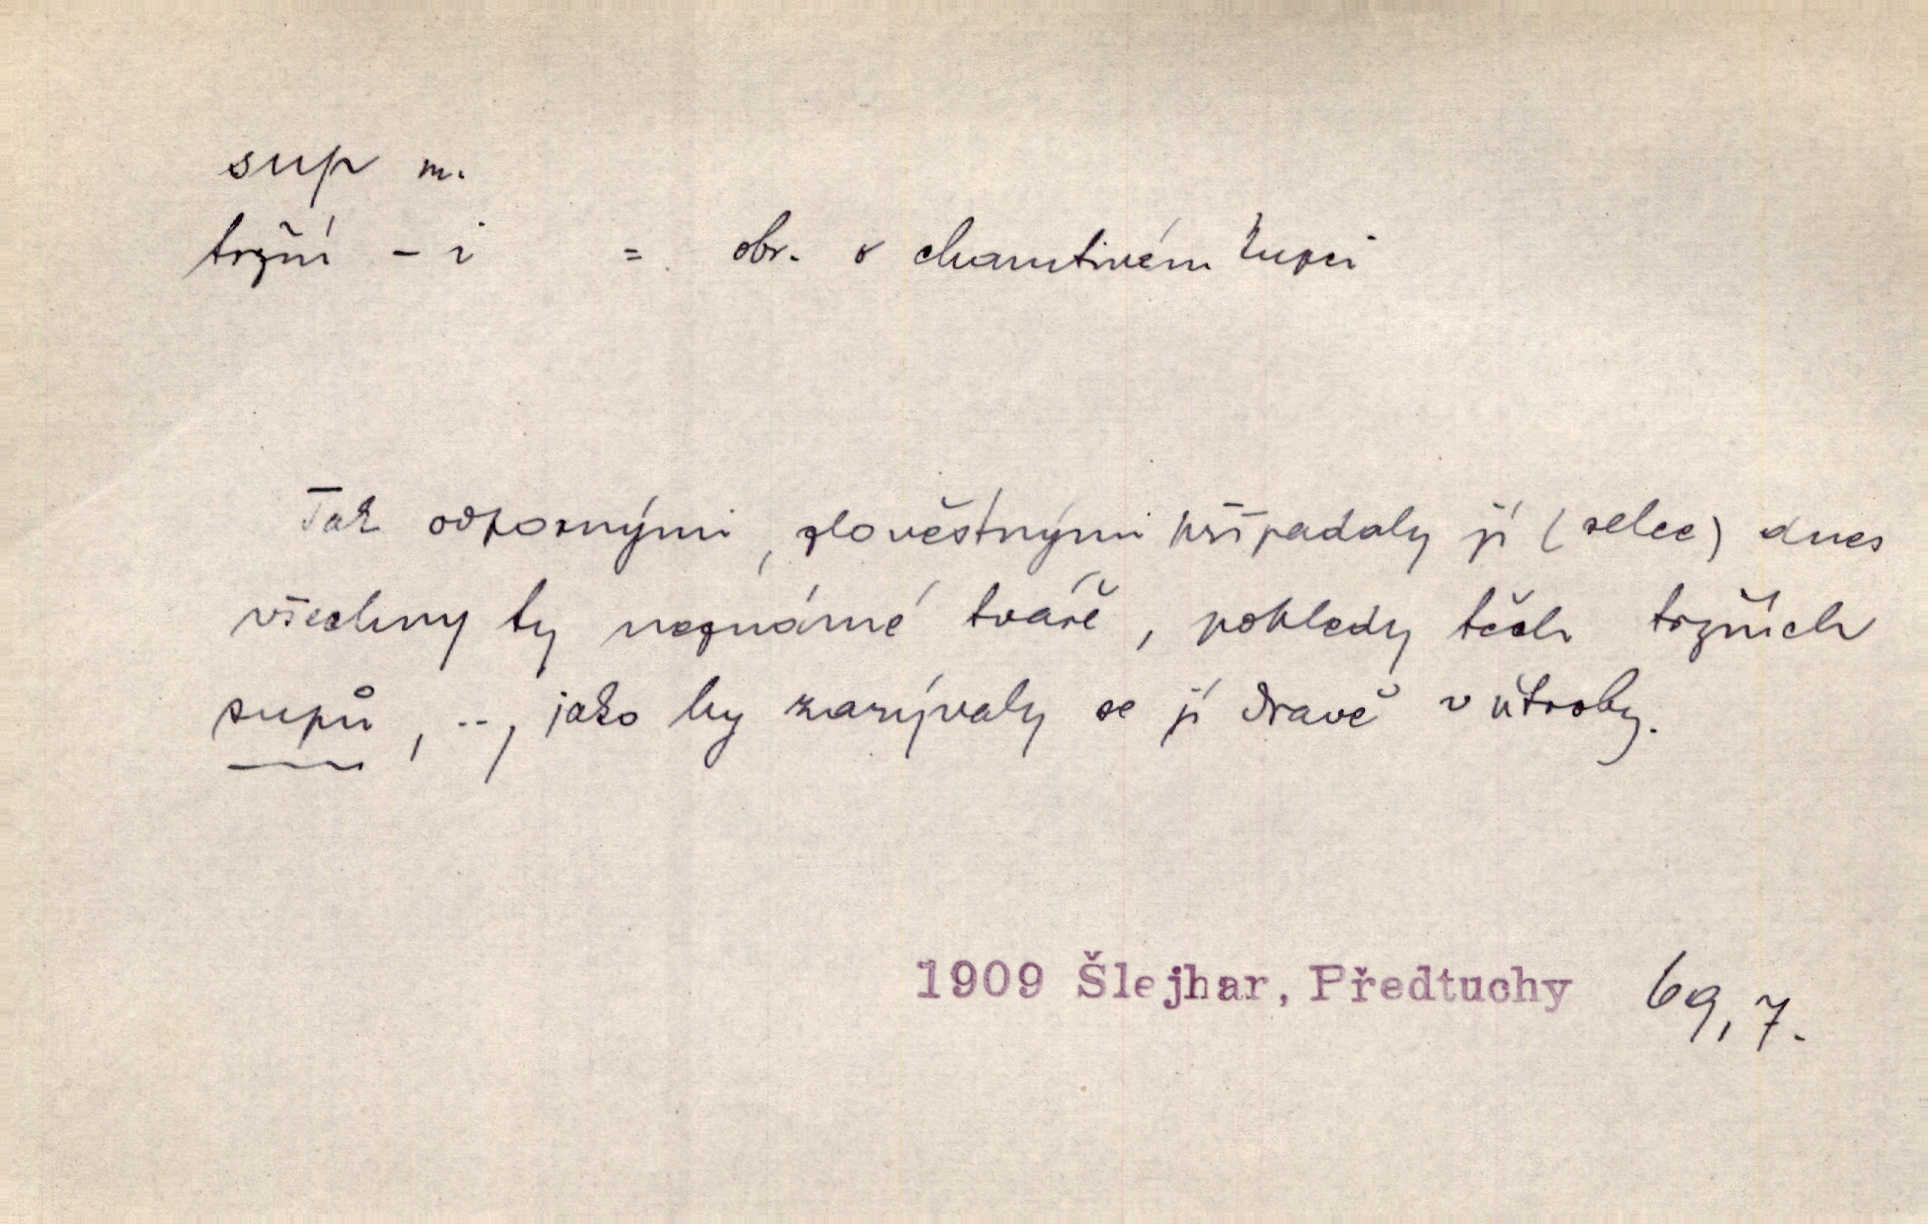 sup m.
tržní - i = obr. o chamtivém kupci
Tak odpornými, zlověstnými připadaly jí (selce) dnes
všechny ty neznámé tváře, pohledy těch tržních
supů, .., jako by zarývaly se jí dravě v útroby.
1909 Šlejhar, Předtuchy 69,7.